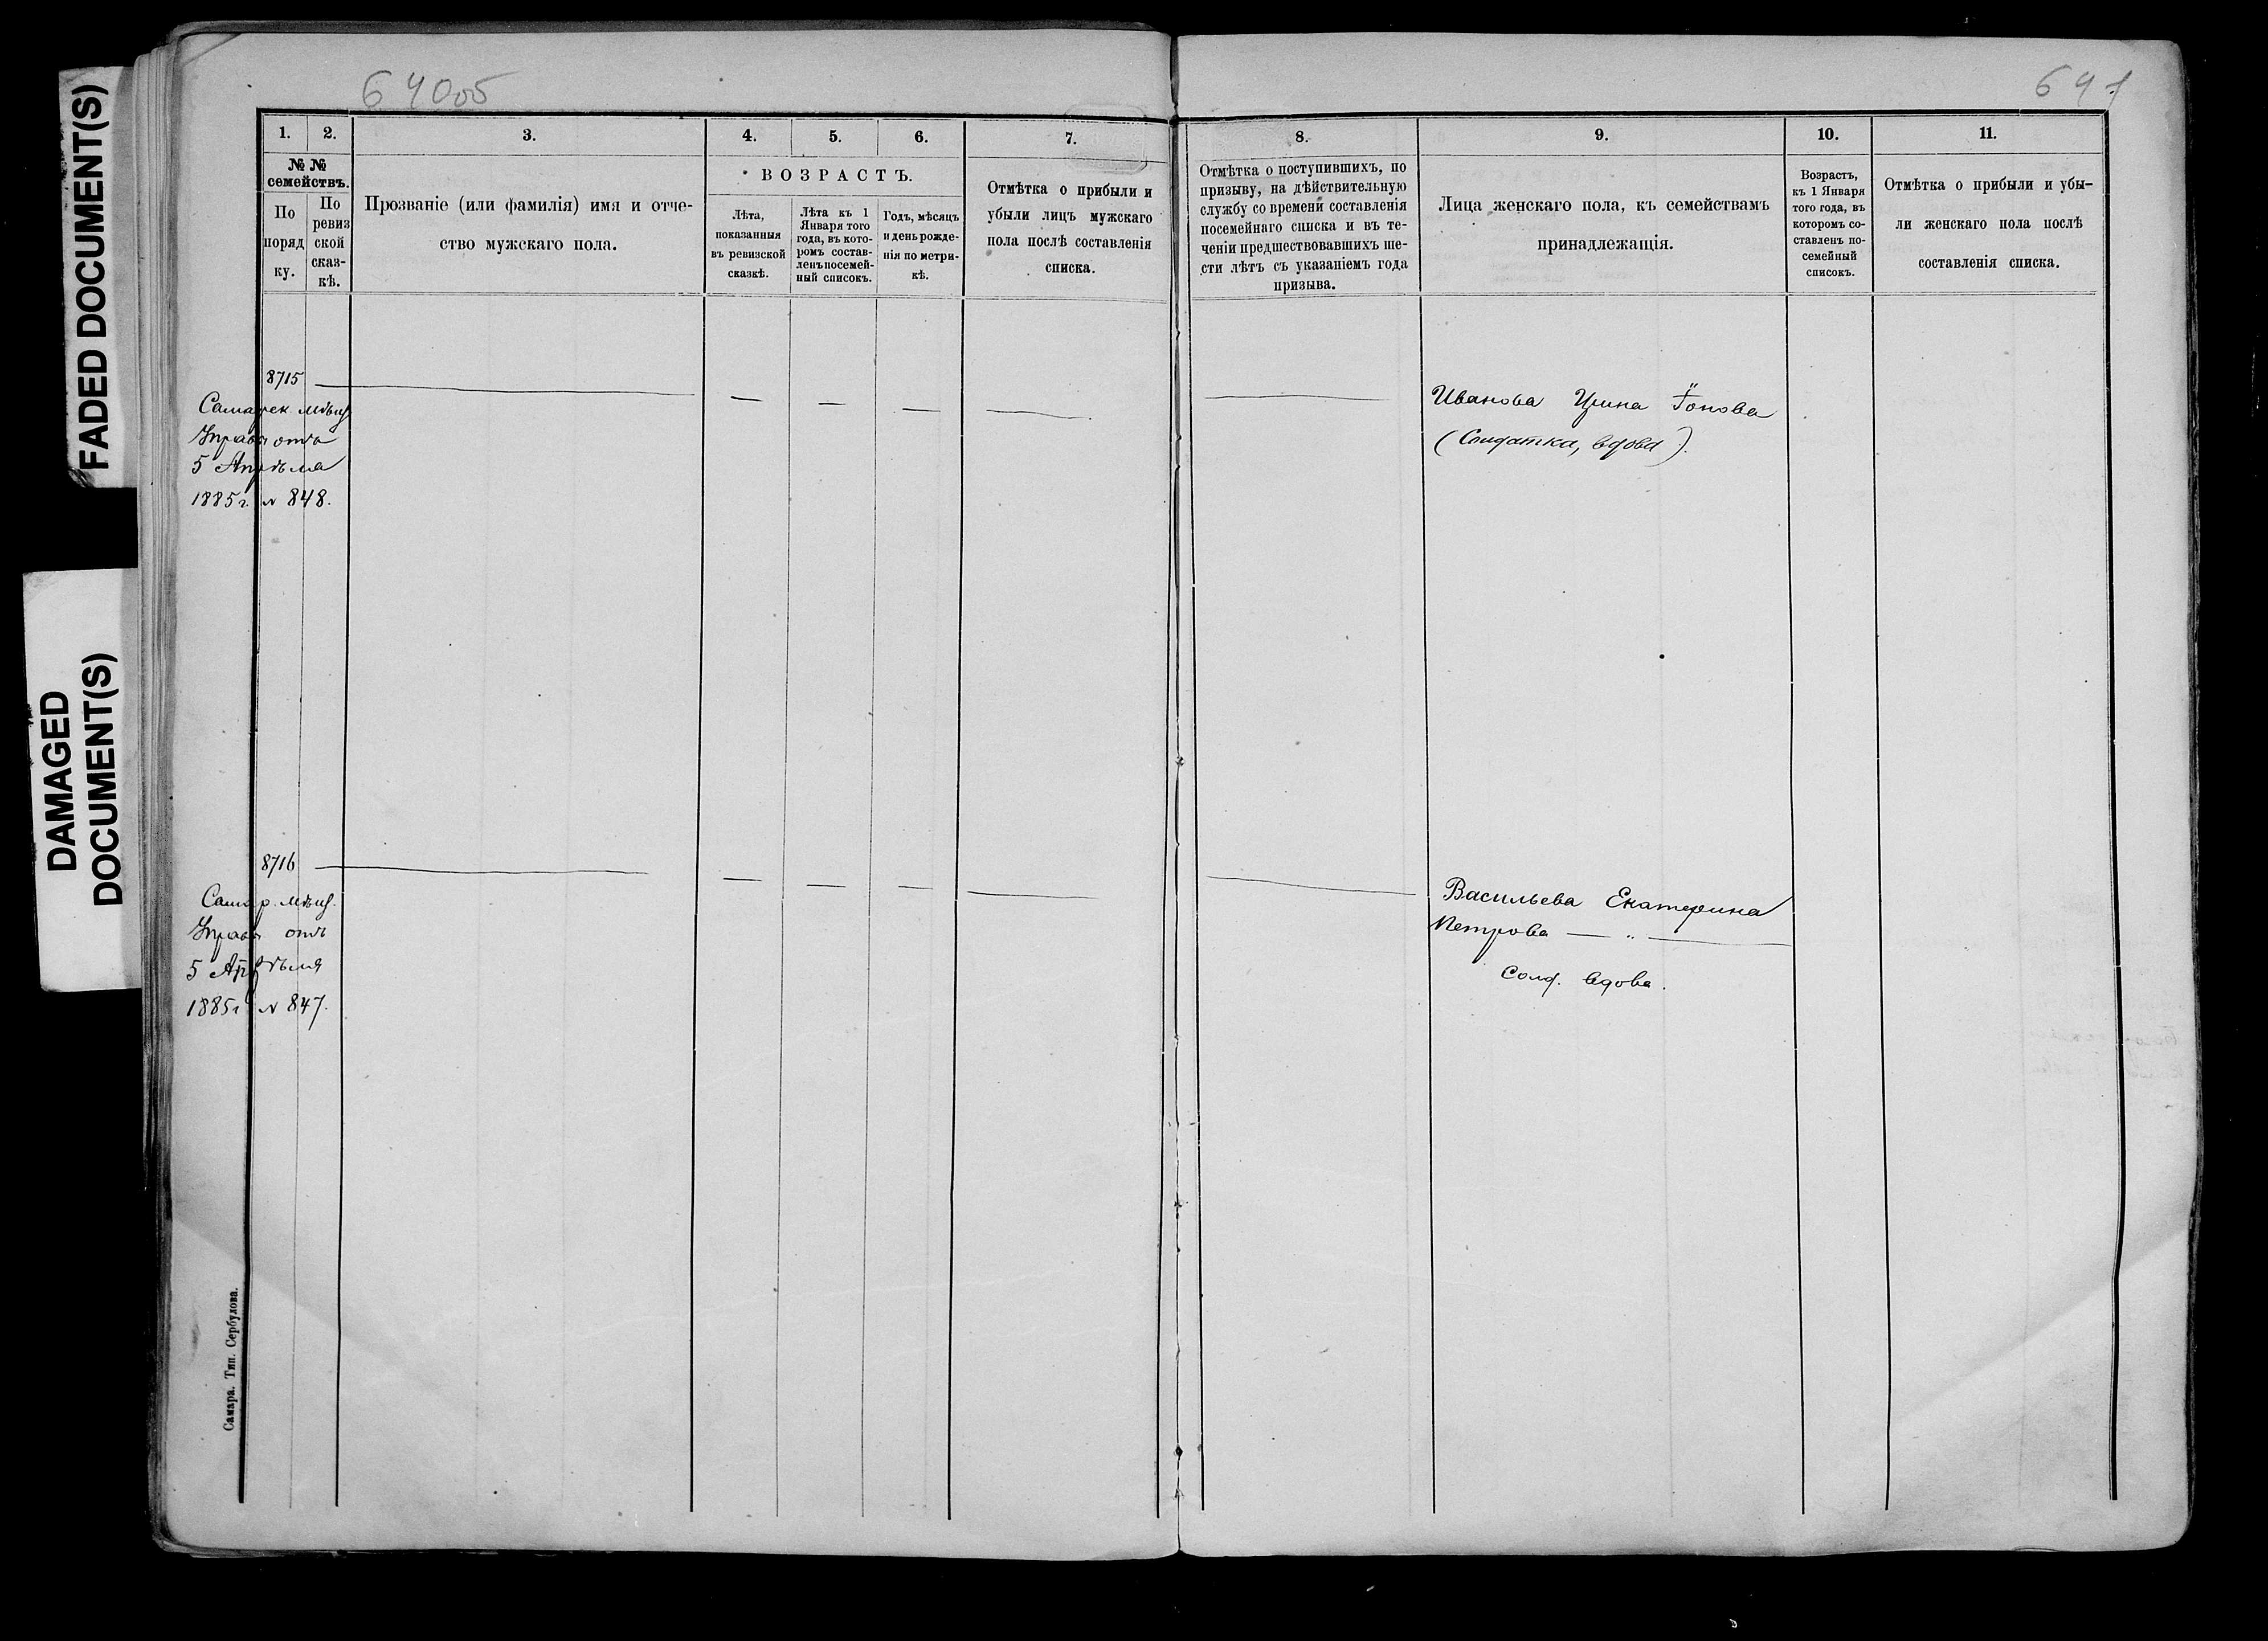 FADED DOCUMENT(S)
DAMAGED
DOCUMENT(S)
640об
641
1. 2. 3. 4. 5. 6. 7.
№ №
семействъ.
По
поряд
ку.
По
ревиз
ской
сказ-
кѣ.
Прозваніе (или фамилія) имя и отче-
ство мужскаго пола.
ВОЗРАСТЪ.
Лѣта,
показанныя
въ ревизской
сказкѣ.
Лѣта къ 1
Января того
года, въ кото-
ромъ состав-
ленъ посемей-
ный списокъ.
Годъ, мѣсяцъ
и день рожде-
нія по метри-
кѣ.
Отмѣтка о прибыли и
убыли лицъ мужскаго
пола послѣ составленія
списка.
8. 9. 10. 11.
Отмѣтка о поступившихъ, по
призыву, на дѣйствительную
службу со времени составленія
посемейнаго списка и въ те-
ченіи предшествовавшихъ ше-
сти лѣтъ съ указаніемъ года
призыва.
Лица женскаго пола, къ семействамъ
принадлежащія.
Возрастъ,
къ 1 Января
того года, въ
которомъ со-
ставленъ по-
семейный
списокъ.
Отмѣтка о прибыли и убы-
ли женскаго пола послѣ
составленія списка.
8715
Самарск. мѣщ.
Управы отъ
5 Апрѣля
1885 г. № 848.
Иванова Ирина
(Солдатка, вдова).
8716
Самар. мѣщ.
Управы отъ
5 Апрѣля
1885 г. № 847.
Васильева Екатерина
Петрова — „ —
Солд. вдова.
Самара. Тип. Сербулова.